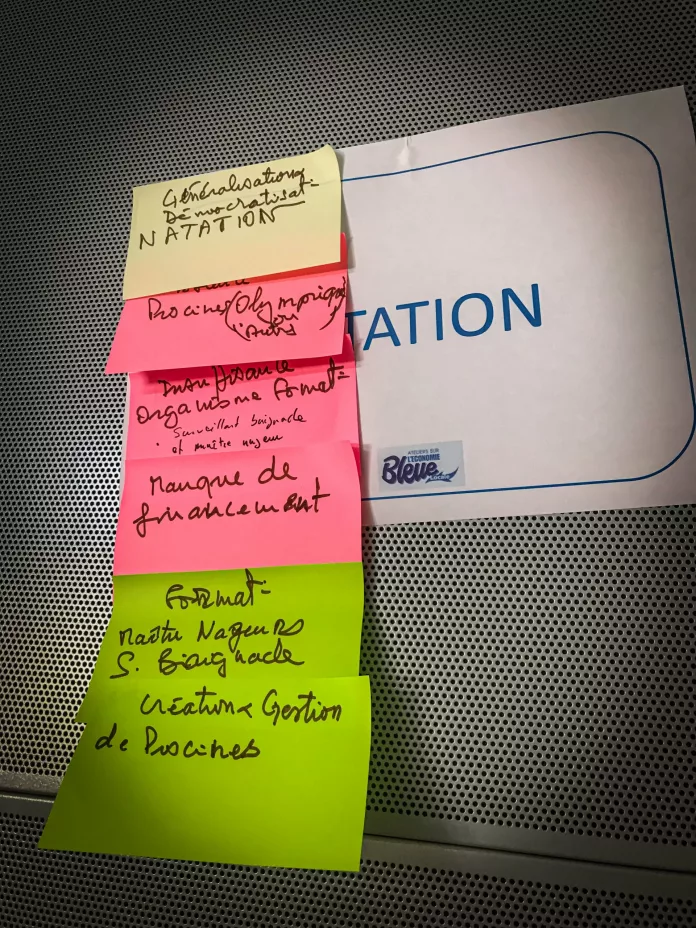 Généralisation &
Démocratisat=
NATATION
Piscines (Olympique
ou
"Autres")
Insuffisance
Organisme format=
. Surveillant baignade
et maître nageur
Manque de
financement
Format=
Maître Nageurs
S. Baignade
Création & Gestion
de Piscines
TATION
ATELIERS SUR
L'ÉCONOMIE
BLEUE
Locale